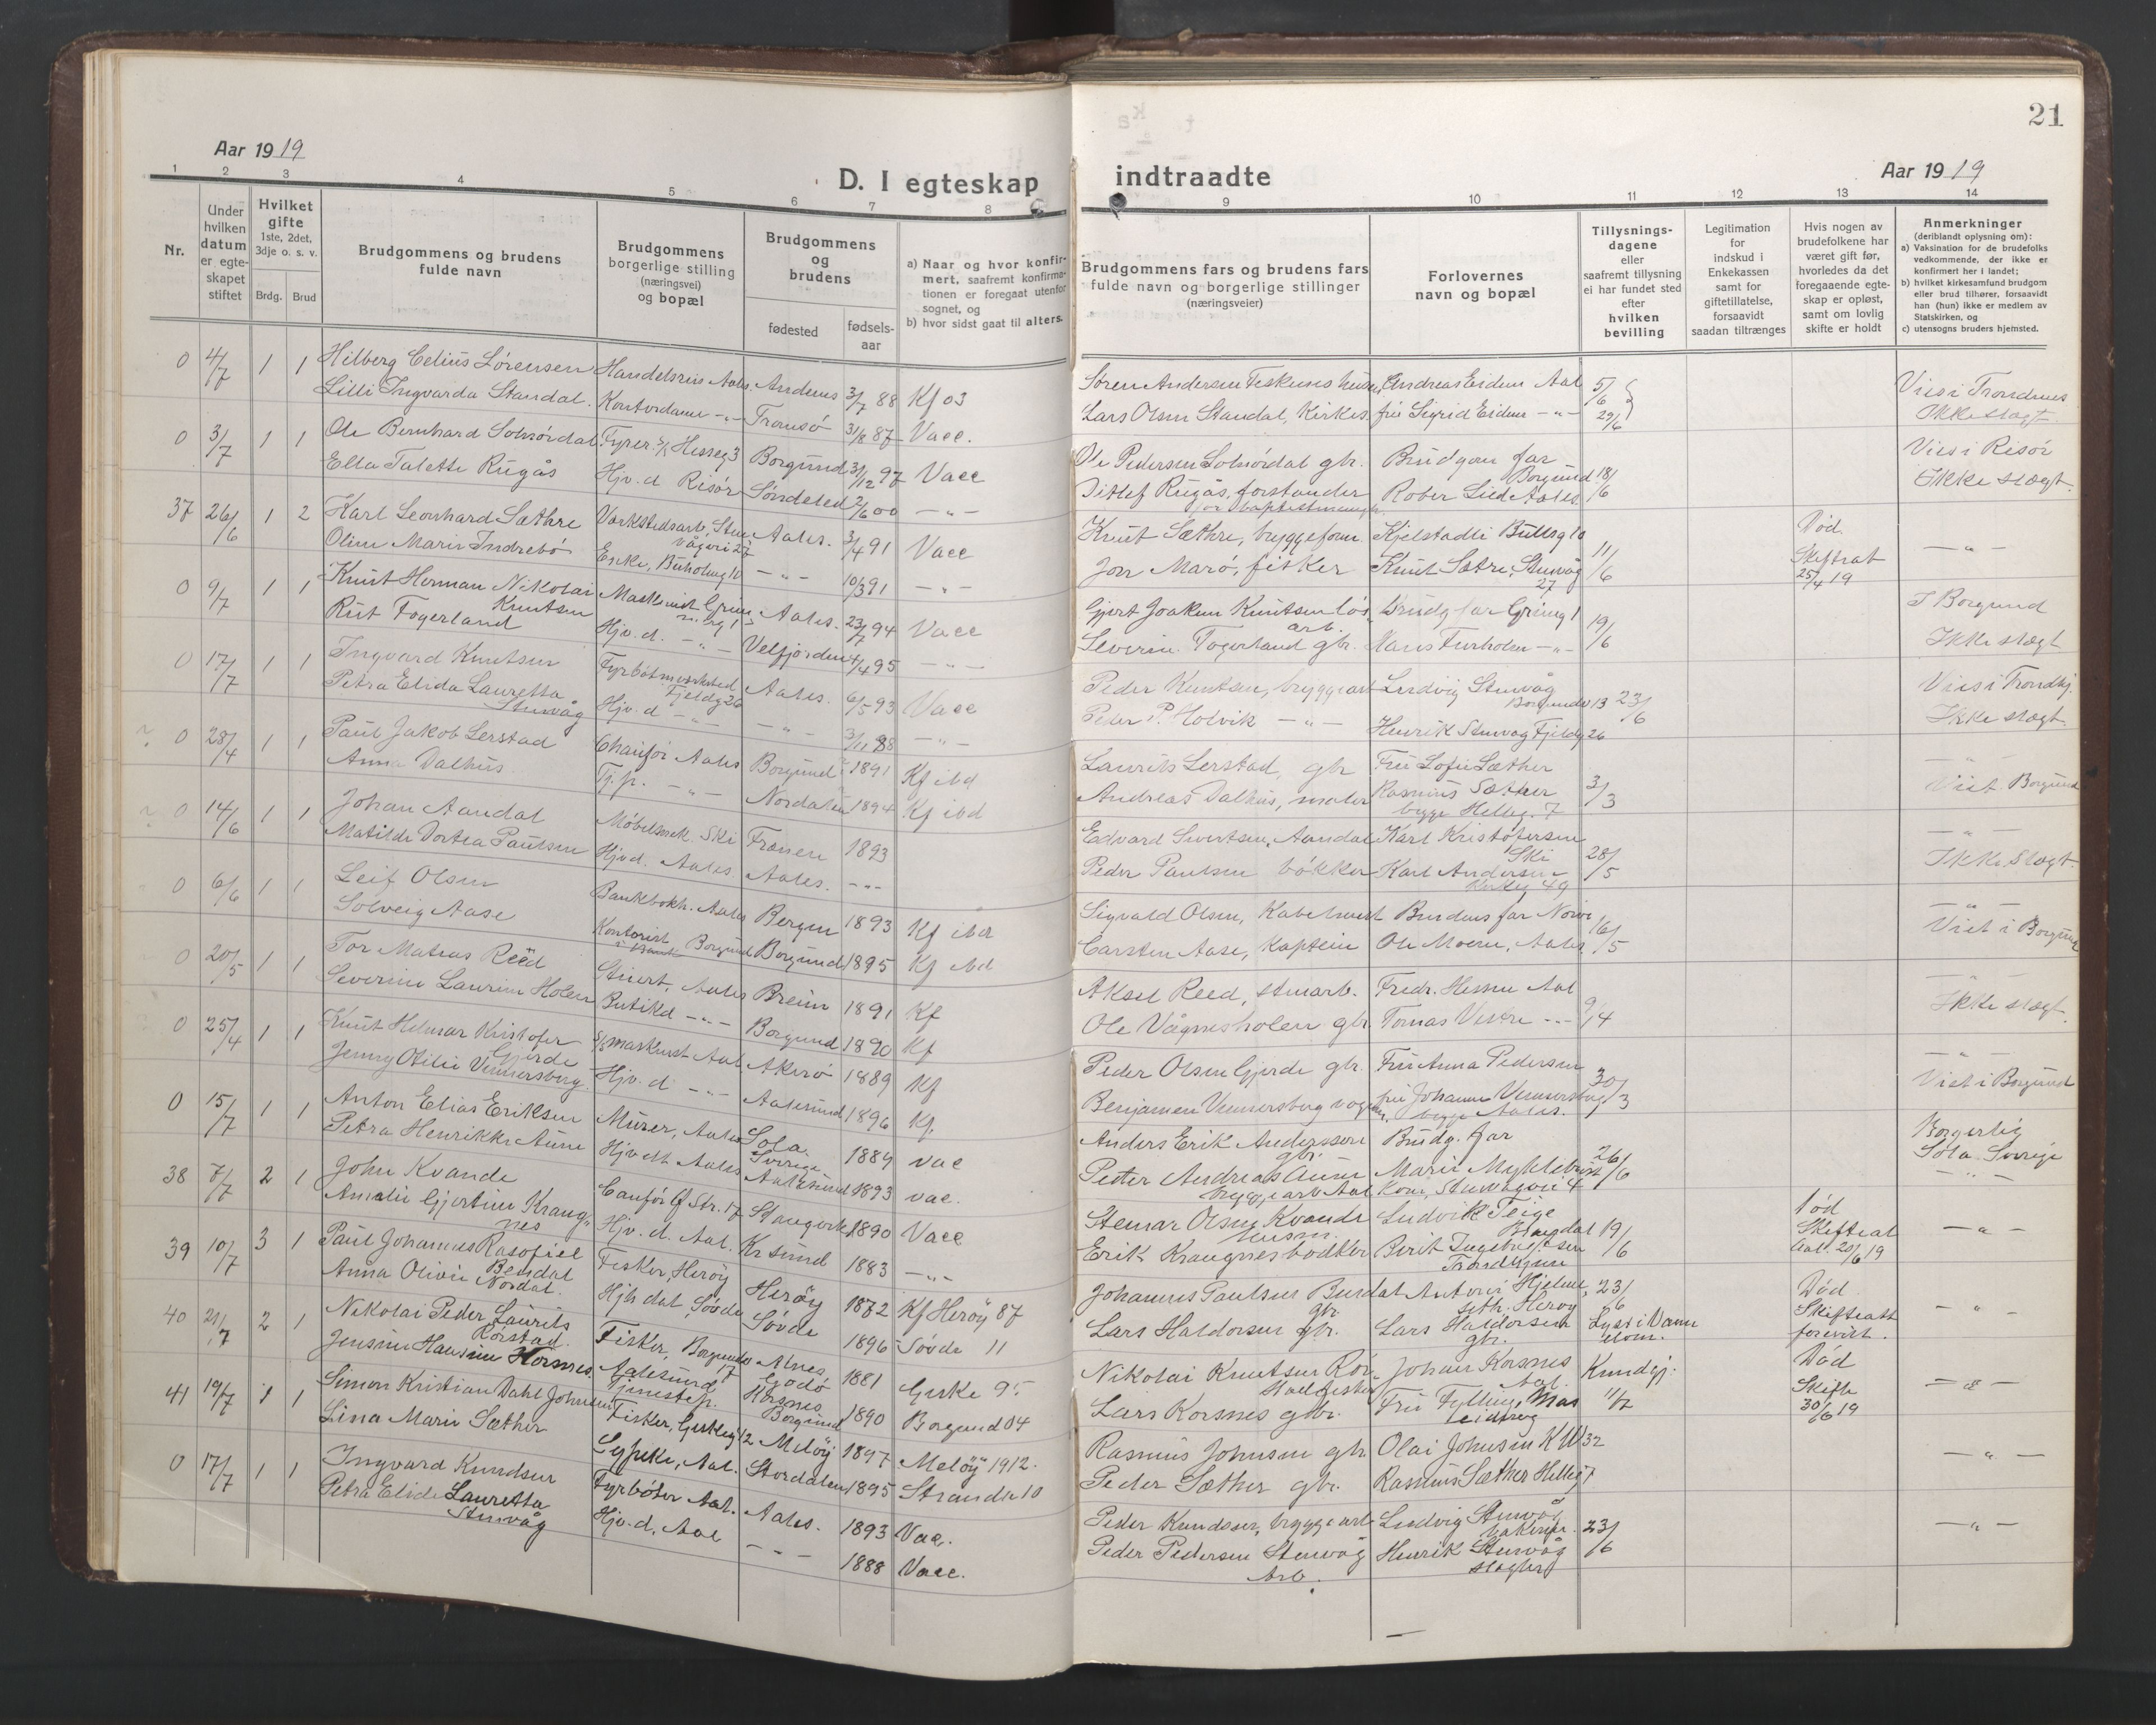 21
Aar 1919
D. I egteskap
indtraadte
Aar 1919
1 2 3 4 5 6 7 8 9 10 11 12 13 14
Nr.
Under hvilken datum er egteskapet stiftet
Hvilket gifte 1ste, 2det, 3dje o. s. v.
Brdg. Brud
Brudgommens og brudens fulde navn
Brudgommens borgerlige stilling (næringsvei) og bopæl
Brudgommens og brudens
fødested
fødsels-aar
a) Naar og hvor konfirmert, saafremt konfirmationen er foregaat utenfor sognet, og
b) hvor sidst gaat til alters.
Brudgommens fars og brudens fars fulde navn og borgerlige stillinger (næringsveier)
Forlovernes navn og bopæl
Tillysningsdagene eller saafremt tillysning ei har fundet sted efter hvilken bevilling
Legitimation for indskud i Enkekassen samt for giftetillatelse, forsaavidt saadan tiltrænges
Hvis nogen av brudefolkene har været gift før, hvorledes da det foregaaende egteskap er opløst, samt om lovlig skifte er holdt
Anmerkninger (deriblandt oplysning om):
a) Vaksination for de brudefolks vedkommende, der ikke er konfirmert her i landet;
b) hvilket kirkesamfund brudgom eller brud tilhører, forsaavidt han (hun) ikke er medlem av Statskirken, og
c) utensogns bruders hjemsted.
0 4/7 1 1 Hilberg Celius Sørensen Handelsreis Aales. Andenes 3/7 88 Kf 03 Søren Andersen Andreas Eidem Aal 5/6 Vies i Trondenes
Lilli Ingvarda Standal. Kontordame -"- Tromsø 31/8 87 Vacc. Lars Olsen Standal, Kirkes. frk Sigrid Eidem -"- 29/6 Ikke slægt
0 3/7 1 1 Ole Bernhard Solnørdal Fyrer. Hesseg 3 Borgund 31/12 97 Vacc Ole Pedersen Solnørdal gbr. Brudgom far Borgund 18/6 Vies i Risør
Ella Talette Rugås Hjv. d Risør Søndeled 2/6 00 -"- Ditlef Rugås, forstander for baptistmenigh. Aales. Ikke slægt.
37 26/6 1 2 Karl Leonhard Sæthre Verkstedsarb. Aales. 3/4 91 Vacc Knut Sæthre, byggeform. Kjelstadli Bullsg 10 11/6 Død. -"-
Oline Marie Indrebø Enke, Buholmg 10 -"- 10/3 91 -"- Jon Marø, fisker Knut Sætre, Stenvåg 27 Skiftrat 25/4 19
0 9/7 1 1 Knut Herman Nikolai Knutsen Maskinist Aales. 23/7 94 Vacc Gjert Joakim Knutsen løs arb. Brudg far 19/6 I Borgund
Rut Fogerland Hjv. d. -"- Velfjorden 4/4 95 -"- Severin Fogerland gbr. Hans Furholm -"- Ikke slægt
0 17/7 1 1 Ingvard Knutsen Fyrbøt Fjeldg 26 Aales. 6/5 93 Vacc Peder Knutsen, bryggearb Ludvig Stenvåg 23/6 Vies i Trondhj.
Petra Elida Lauretta Stenvåg Hjv. d -"- -"- 3/11 88 -"- Peder P. Holvik -"- Henrik Stenvåg Fjeldg 26 Ikke slægt.
? 0 28/4 1 1 Paul Jakob Lerstad Chaufør Aales Borgund 1891 Kf ibd Laurits Lerstad, gbr Fru Sofie Sæther 3/3 -"-
Anna Dalhus Tj. p. -"- Nordalen 1894 Kf ibd Andreas Dalhus, maler Rasmus Sæther begge Helleg. 7 Viet Borgund
? 0 14/6 1 1 Johan Aandal Møbelsnek. Ski Franen 1893 Edvard Sivertsen Aandal Karl Kristofersen Ski 28/5 -"-
Matilde Dortea Paulsen Hjvd. Aales Aales. -"- Peder Paulsen bøkker Karl Andersen Ikke slægt.
0 6/6 1 1 Leif Olsen Bankbokh. Aales Bergen 1893 Kf ibd Sigvald Olsen, Brudens far 16/5 -"-
Solveig Aase Kontorist i Bank Borgund Borgund 1895 Kf ibd Carsten Aase, kaptein Ole Moen, Aales. Viet i Borgund
0 20/5 1 1 Tor Mateas Reed Stuert, Aales Breim 1891 Kf Aksel Reed, stenarb. Fredr. Hessen Aal 9/4 -"-
Severine Laurine Holen Butikd -"- Borgund 1890 Kf Ole Vågnesholen gbr. Tomas Vestre -"- Ikke slægt.
0 25/4 1 1 Knut Helmar Kristofer Gjerde maskinist Aal. Akerø 1889 Kf Peder Olsen Gjerde gbr. Fru Anna Pedersen 30/3 -"-
Jenny Otilie Vennersberg Hjv. d -"- Aalesund 1896 Kf. Benjamin Vennersberg fru Johanne Vennersberg begge Aales. Viet i Borgund
0 15/7 1 1 Anton Elias Eriksen Murer, Aales Sola. Sverige 1884 vac Anders Erik Andersson gbr. Brudg. far 26/6 Borgerlig
Petra Henrikke Aune Hjvdt Aales Aalesund 1893 vac. Peter Andreas Aune bryggearb Aal Marie Myklebust Sola Sverige
38 7/7 2 1 John Kvande Stangvik 1890 Vacc Steinar Olsen Kvande Husm. Ludvik Teige Blaydal 19/6 Død Skifteat Aal. 20/6 19 -"-
Amalie Gjertine Krangnes Hjv. d. Aal. Kr sund 1883 -"- Erik Krangnes bødker Berit Ingebrigtsen Trondhjem
39 10/7 3 1 Paul Johannes Rasofiel Bendal Fisker, Herøy Herøy 1872 Kf Herøy 87 Johannes Paulsen Bendal gbr. Antoni Hjelme, Herøy 23/6 Død Skifteatt forevist. -"-
Anna Olivie Nordal. Søvde Søvde 1896 Søvde 11 Lars Haldorsen gbr. Lars Haldorsen gbr. Lyst i Vannelven.
40 21/7 2 1 Nikolai Peder Laurits Rørstad Fisker, Borgund Alnes Godø 1881 Giske 95 Nikolai Knutsen Rørstad fisker Johan Korsnes Aal. Kundgj. Død -"-
Jensine Hansine Korsnes. Aalesund Tjenestep. Korsnes Borgund 1890 Borgund 04 Lars Korsnes gbr. Fru Fylling, 11/7 Skifte 30/6 19
41 19/7 1 1 Simon Kristian Dahl Johnsen Fisker, Meløy 1897 Meløy 1912. Rasmus Johnsen gbr Olai Johnsen K W 32 -"-
Lina Marie Sæther Sypike, Aal. Stordalen 1895 Stranda 10 Peder Sæther gbr. Rasmus Sæther Helleg 7
0 17/7 1 1 Ingvard Knudsen Fyrbøter Aal. Aales. 1893 Vac. Peder Knudsen, bryggearb Ludvig Stenvåg 23/6 -"-
Petra Elide Lauretta Stenvåg Hjv. d, Aal -"- 1888 Vacc. Peder Pedersen Stenvåg Arb. Henrik Stenvåg slagter